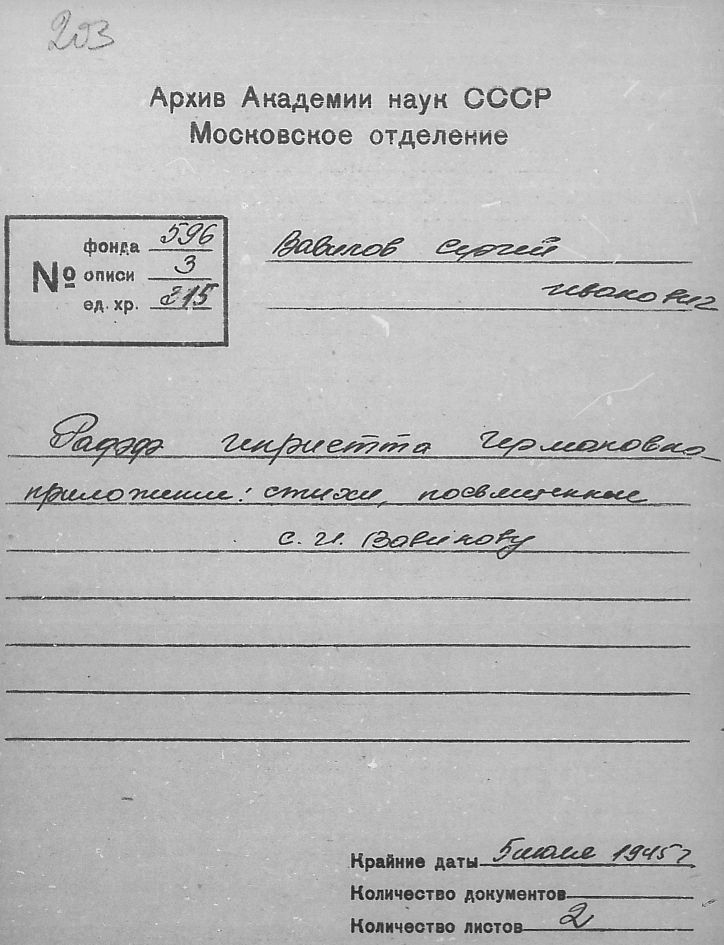 203
Архив Академии наук СССР
Московское отделение
№
фонда 596
описи 3
ед. хр. 215
Вавилов Сергей
Иванович
Германовна
приложение: стихи, посвященные
С. И. Вавилову
Крайние даты 1945 г
Количество документов
Количество листов 2